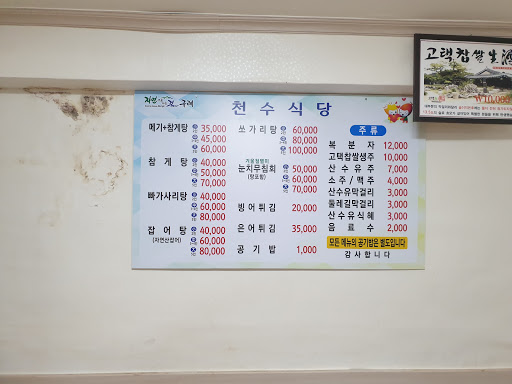 천수식당
메기+참게탕 35,000
45,000
60,000
참게탕 40,000
50,000
70,000
빠가사리탕 40,000
60,000
80,000
잡어탕 40,000
(자연산잡어) 60,000
80,000
쏘가리탕 60,000
80,000
100,000
겨울철별미
눈치무침회 50,000
(탕포함) 60,000
70,000
빙어튀김 20,000
은어튀김 35,000
공기밥 1,000
주류
복분자 12,000
고택찹쌀생주 10,000
산수유주 7,000
소주/맥주 4,000
산수유막걸리 3,000
둘레길막걸리 3,000
산수유식혜 3,000
음료수 2,000
모든 메뉴의 공기밥은 별도입니다
감사합니다
고택찹쌀生酒
₩10,000